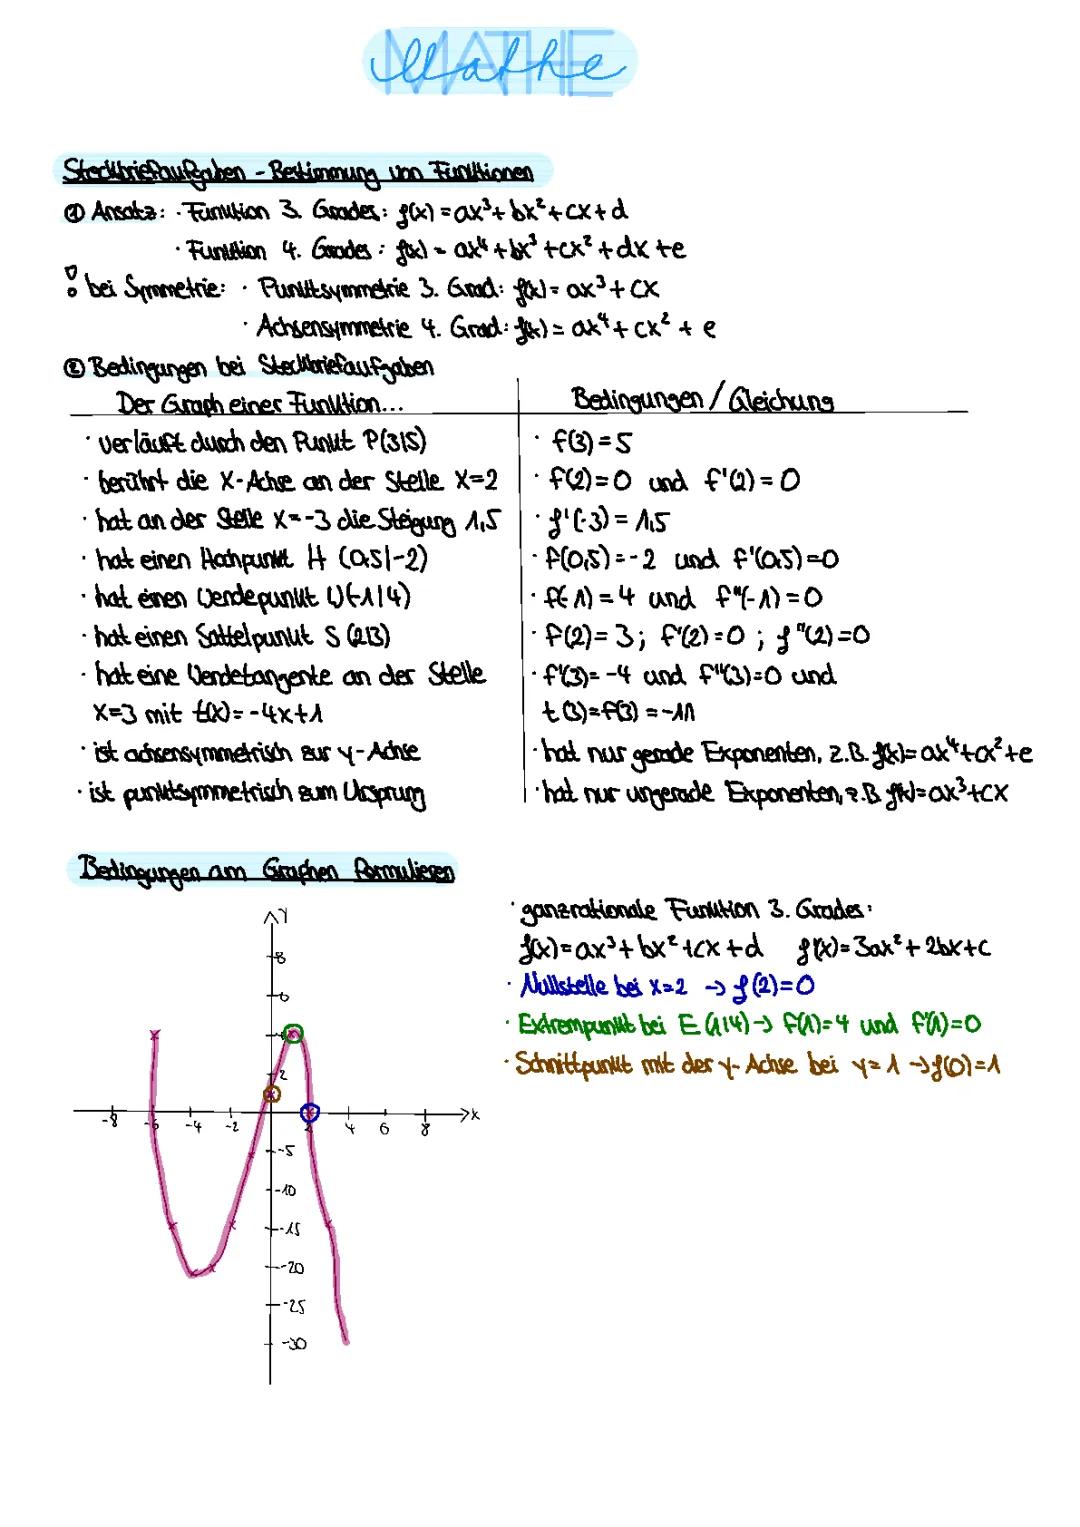 MATHE
Mathe
Steckbriefaufgaben - Bestimmung von Funktionen
① Ansatz: · Funktion 3. Grades: f(x) = ax³ + bx² + cx + d
· Funktion 4. Grades: f(x) = ax⁴ + bx³ + cx² + dx + e
! bei Symmetrie: · Punktsymmetrie 3. Grad: f(x) = ax³ + cx
· Achsensymmetrie 4. Grad: f(x) = ax⁴ + cx² + e
② Bedingungen bei Steckbriefaufgaben
Der Graph einer Funktion... Bedingungen / Gleichung
· verläuft durch den Punkt P(3|5) · f(3) = 5
· berührt die X-Achse an der Stelle X=2 · f(2) = 0 und f'(2) = 0
· hat an der Stelle X=-3 die Steigung 1,5 · f'(-3) = 1,5
· hat einen Hochpunkt H (0,5|-2) · f(0,5) = -2 und f'(0,5) = 0
· hat einen Wendepunkt W(-1|4) · f(-1) = 4 und f"(-1) = 0
· hat einen Sattelpunkt S (2|3) · f(2) = 3; f'(2) = 0; f"(2) = 0
· hat eine Wendetangente an der Stelle · f'(3) = -4 und f"(3) = 0 und
X=3 mit t(x) = -4x+1 t(3) = f(3) = -11
· ist achsensymmetrisch zur y-Achse · hat nur gerade Exponenten, z.B. f(x) = ax⁴ + cx² + e
· ist punktsymmetrisch zum Ursprung · hat nur ungerade Exponenten, z.B. f(x) = ax³ + cx
Bedingungen am Graphen formulieren
· ganzrationale Funktion 3. Grades:
f(x) = ax³ + bx² + cx + d f'(x) = 3ax² + 2bx + c
· Nullstelle bei x=2 → f(2) = 0
· Extrempunkt bei E(1|4) → f(1) = 4 und f'(1) = 0
· Schnittpunkt mit der y-Achse bei y=1 → f(0) = 1
Y
8
6
4
2
-8 -6 -4 -2 2 4 6 8 X
-5
-10
-15
-20
-25
-30